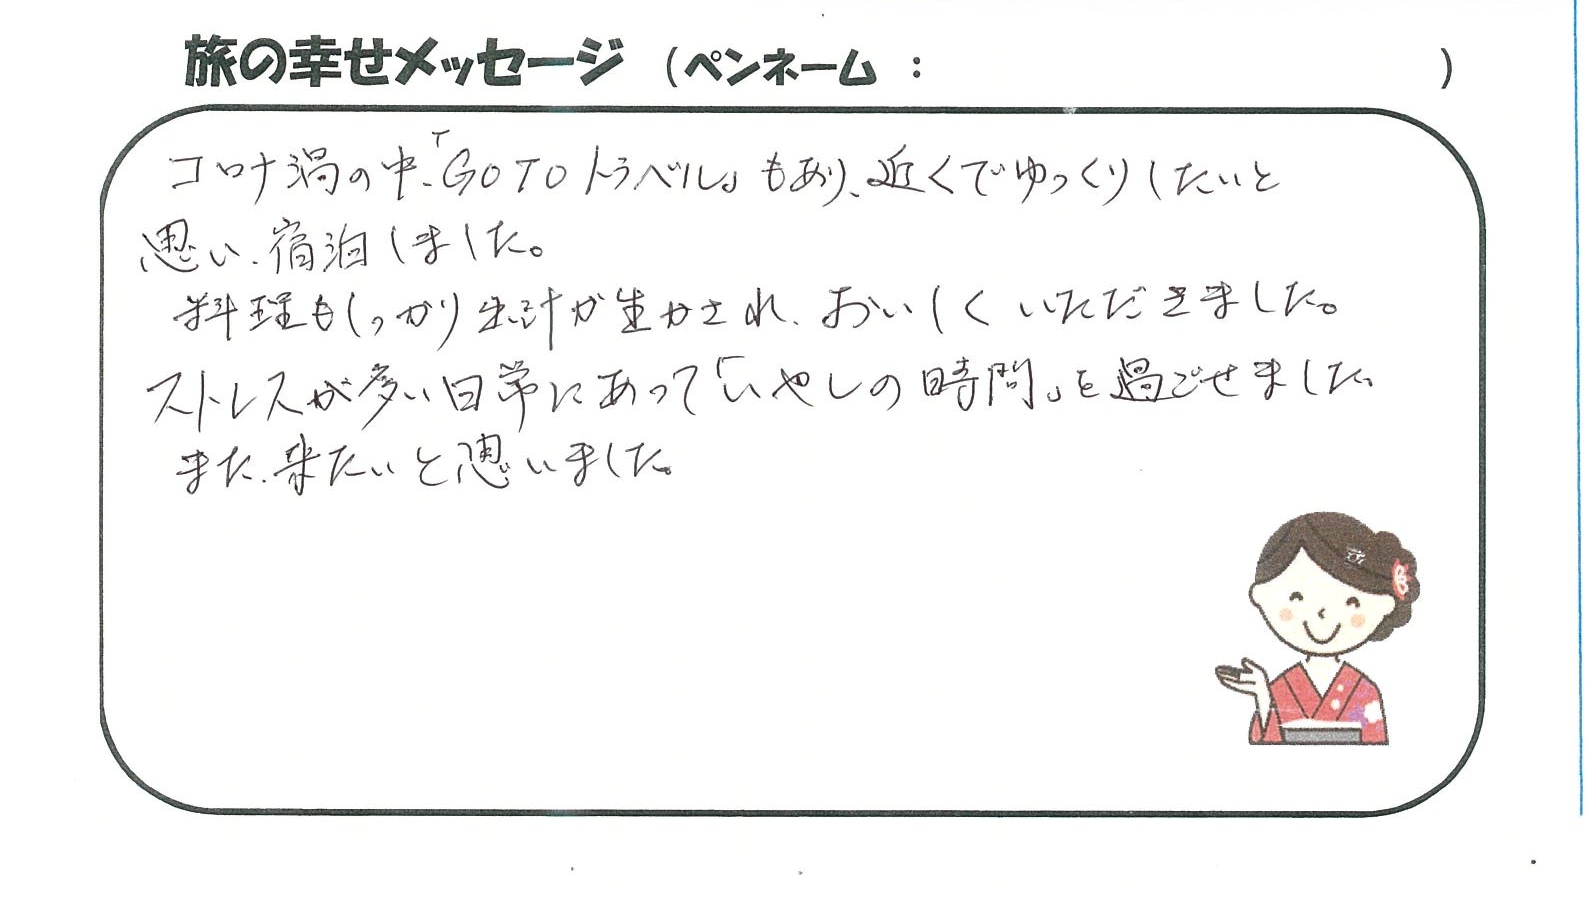 旅の幸せメッセージ (ペンネーム : )
コロナ渦の中、「GO TO トラベル」もあり、近くでゆっくりしたいと
思い、宿泊しました。
料理もしっかり出汁が生かされ、おいしくいただきました。
ストレスが多い日常にあって「いやしの時間」を過ごせました。
また、来たいと思いました。